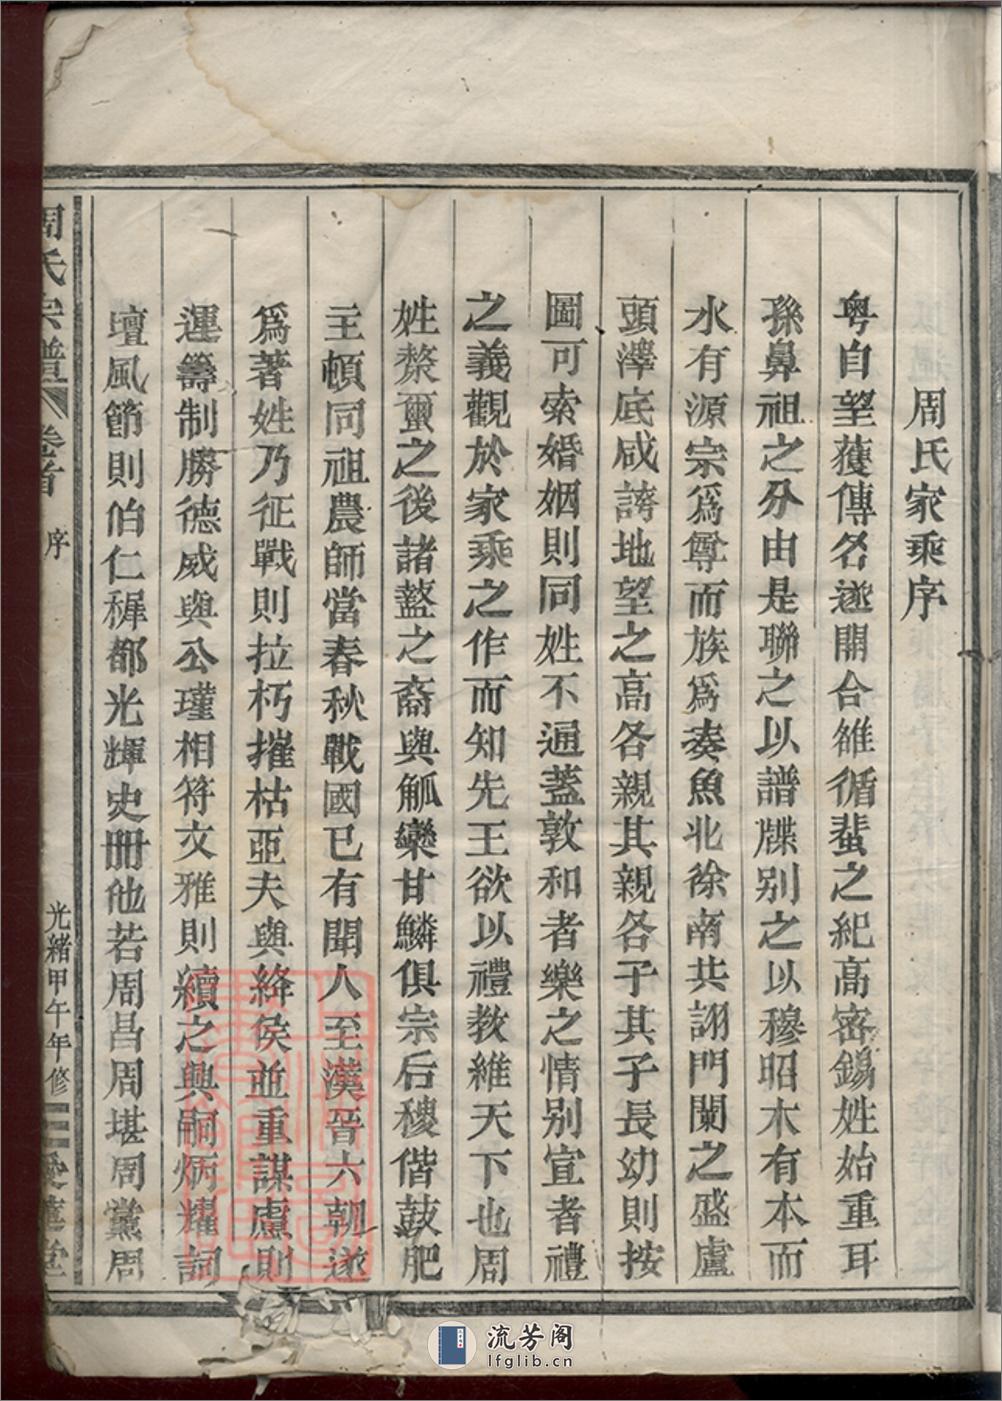 周氏家乘序
粤自望蒦傳名遂開合雒循蜚之紀高密錫姓始重耳
孫鼻祖之分由是聯之以譜牒别之以穆昭木有本而
水有源宗爲尊而族爲奏魚北徐南共詡門闌之盛盧
頭澤底咸誇地望之高各親其親各子其子長幼則按
圖可索婚姻則同姓不通蓋敦和者樂之情别宜者禮
之義觀於家乘之作而知先王欲以禮教維天下也周
姓漦亶之後諸盩之裔與觚欒甘鱗俱宗后稷偕鼓肥
主頓同祖農師當春秋戰國已有聞人至漢晉六朝遂
爲著姓乃征戰則拉朽摧枯亞夫與絳侯並重謀慮則
運籌制勝德威與公瑾相符文雅則續之興嗣炳耀詞
壇風節則伯仁穉都光輝史冊他若周昌周堪周黨周
周氏宗譜 卷首 序 光緒甲午年修 愛蓮堂
流芳阁
lfglib.cn